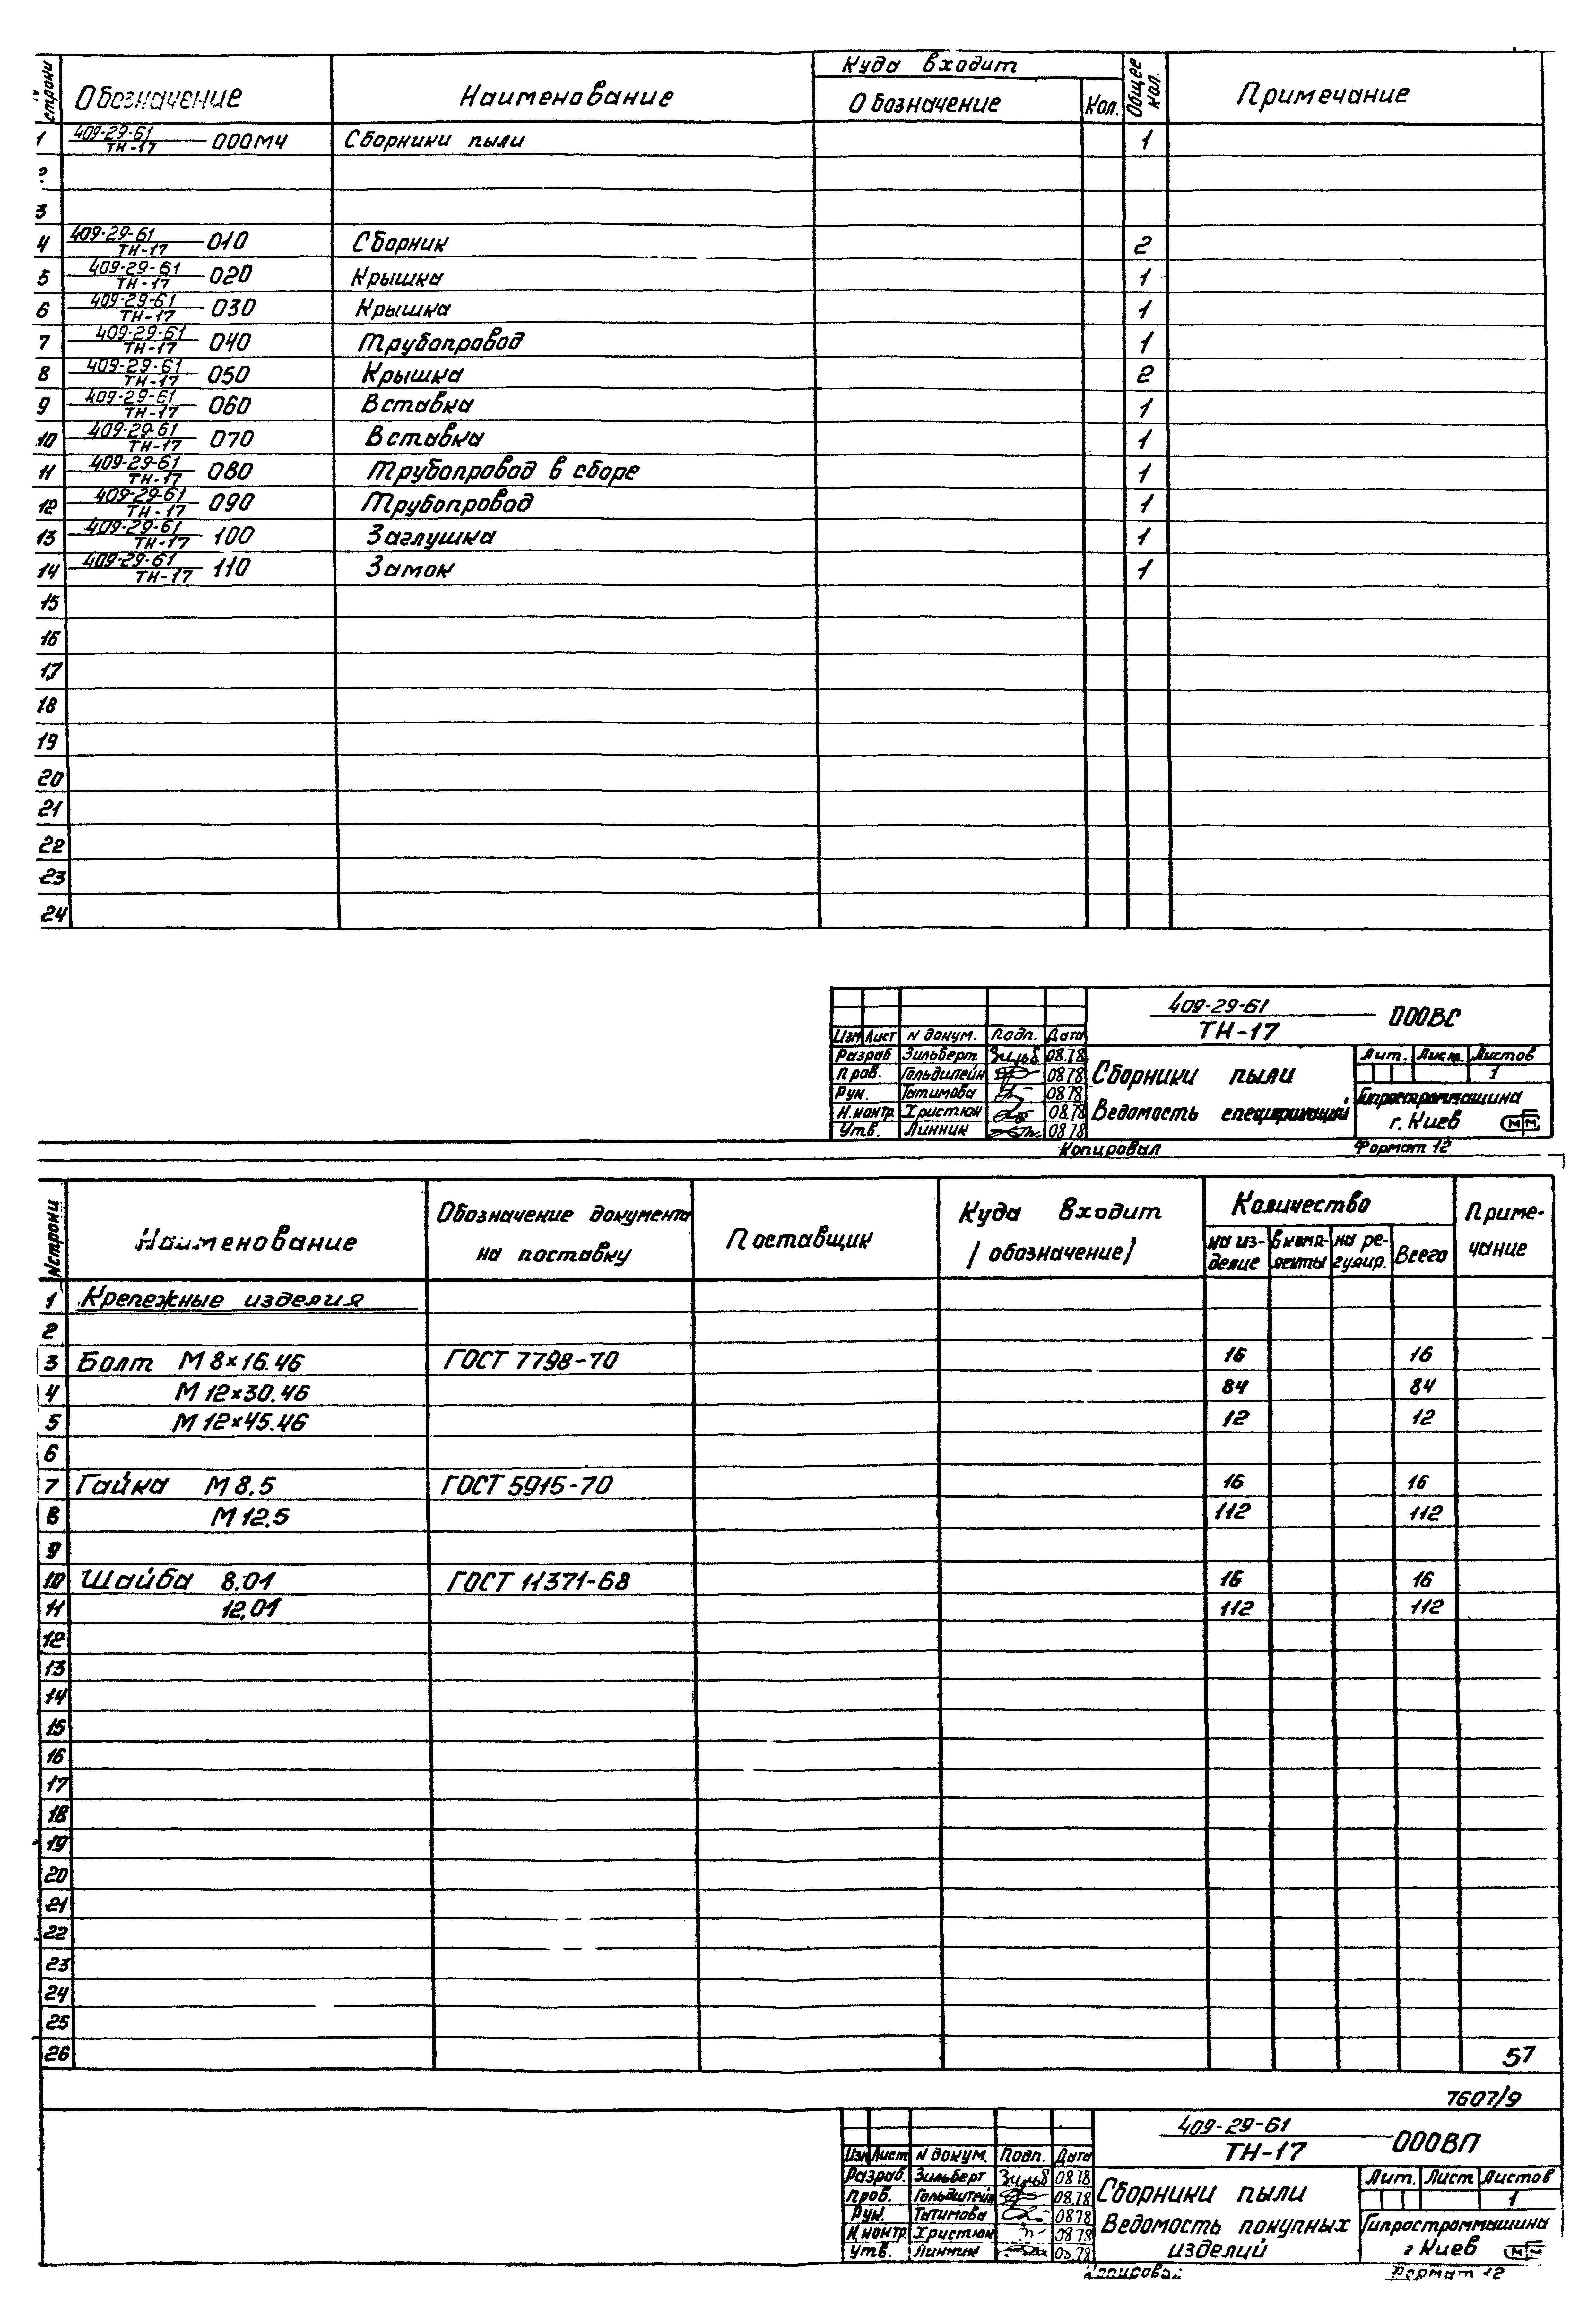 строки Обозначение Наименование Куда входит Общее кол. Примечание
Обозначение Кол.
1 409-29-61/ТН-17 000МЧ Сборники пыли 1
2
3
4 409-29-61/ТН-17 010 Сборник 2
5 409-29-61/ТН-17 020 Крышка 1
6 409-29-61/ТН-17 030 Крышка 1
7 409-29-61/ТН-17 040 Трубопровод 1
8 409-29-61/ТН-17 050 Крышка 2
9 409-29-61/ТН-17 060 Вставка 1
10 409-29-61/ТН-17 070 Вставка 1
11 409-29-61/ТН-17 080 Трубопровод в сборе 1
12 409-29-61/ТН-17 090 Трубопровод 1
13 409-29-61/ТН-17 100 Заглушка 1
14 409-29-61/ТН-17 110 Замок 1
15
16
17
18
19
20
21
22
23
24
409-29-61/ТН-17 000ВС
Изм Лист N докум. Подп. Дата
Разраб Зильберт Зильб 08.78
Пров. Гольдштейн 0878
Рук. Татимова 0878
Н.контр Христюк 08.78
Утв. Линник 0878
Сборники пыли
Ведомость спецификаций
Лит. Лист. Листов
1
Гипростроммашина
г. Киев
ММ
Копировал Формат 12
N строки Наименование Обозначение документа на поставку Поставщик Куда входит /обозначение/ Количество Приме-чание
на из-делие в комп-лекты на ре-гулир. Всего
1 Крепежные изделия
2
3 Болт М8×16.46 ГОСТ 7798-70 16 16
4 М12×30.46 84 84
5 М12×45.46 12 12
6
7 Гайка М8.5 ГОСТ 5915-70 16 16
8 М12.5 112 112
9
10 Шайба 8.01 ГОСТ 11371-68 16 16
11 12.01 112 112
12
13
14
15
16
17
18
19
20
21
22
23
24
25
26
57
7607/9
409-29-61/ТН-17 000ВП
Изм Лист N докум. Подп. Дата
Разраб. Зильберт Зильб 0878
Пров. Гольдштейн 08.78
Рук. Татимова 0878
Н.контр. Христюк 0878
Утв. Линник 08.78
Сборники пыли
Ведомость покупных
изделий
Лит. Лист Листов
1
Гипростроммашина
г Киев
ММ
Копировал Формат 12